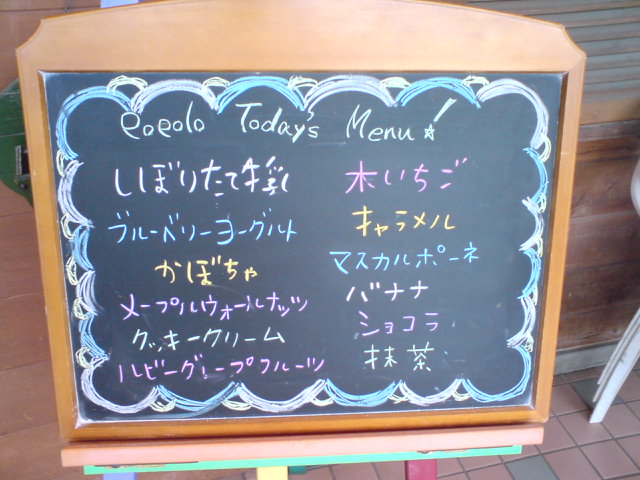 popolo Today's Menu!
しぼりたて牛乳
ブルーベリーヨーグルト
かぼちゃ
メープルウォールナッツ
クッキークリーム
ルビーグレープフルーツ
木いちご
キャラメル
マスカルポーネ
バナナ
ショコラ
抹茶